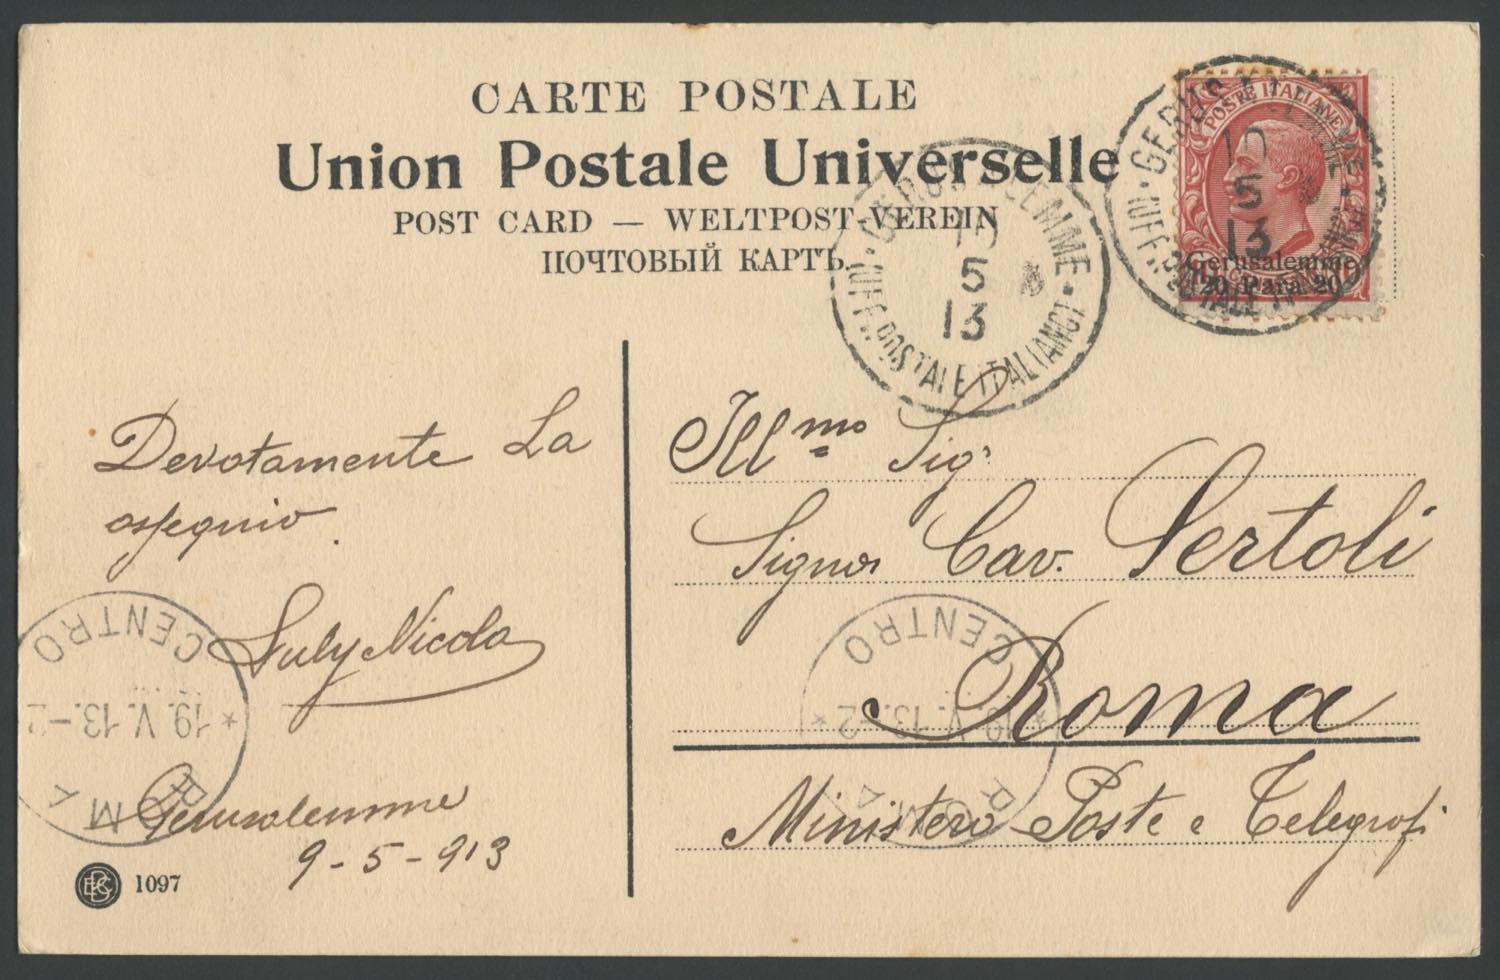 CARTE POSTALE
Union Postale Universelle
POST CARD — WELTPOST-VEREIN
ПОЧТОВЫЙ КАРТЪ
POSTE ITALIANE
Gerusalemme
20 Para 20
10
5
13
GERUSALEMME
UFF. POSTALE ITALIANO
10
5
13
Devotamente La
ossequio.
Suly Nicola
Gerusalemme
9-5-913
Ill.mo Sig.
Signor Cav. Sertoli
Roma
Ministero Poste e Telegrafi
ROMA CENTRO
*19.V.13.-2
ROMA CENTRO
*19.V.13.-2*
1097